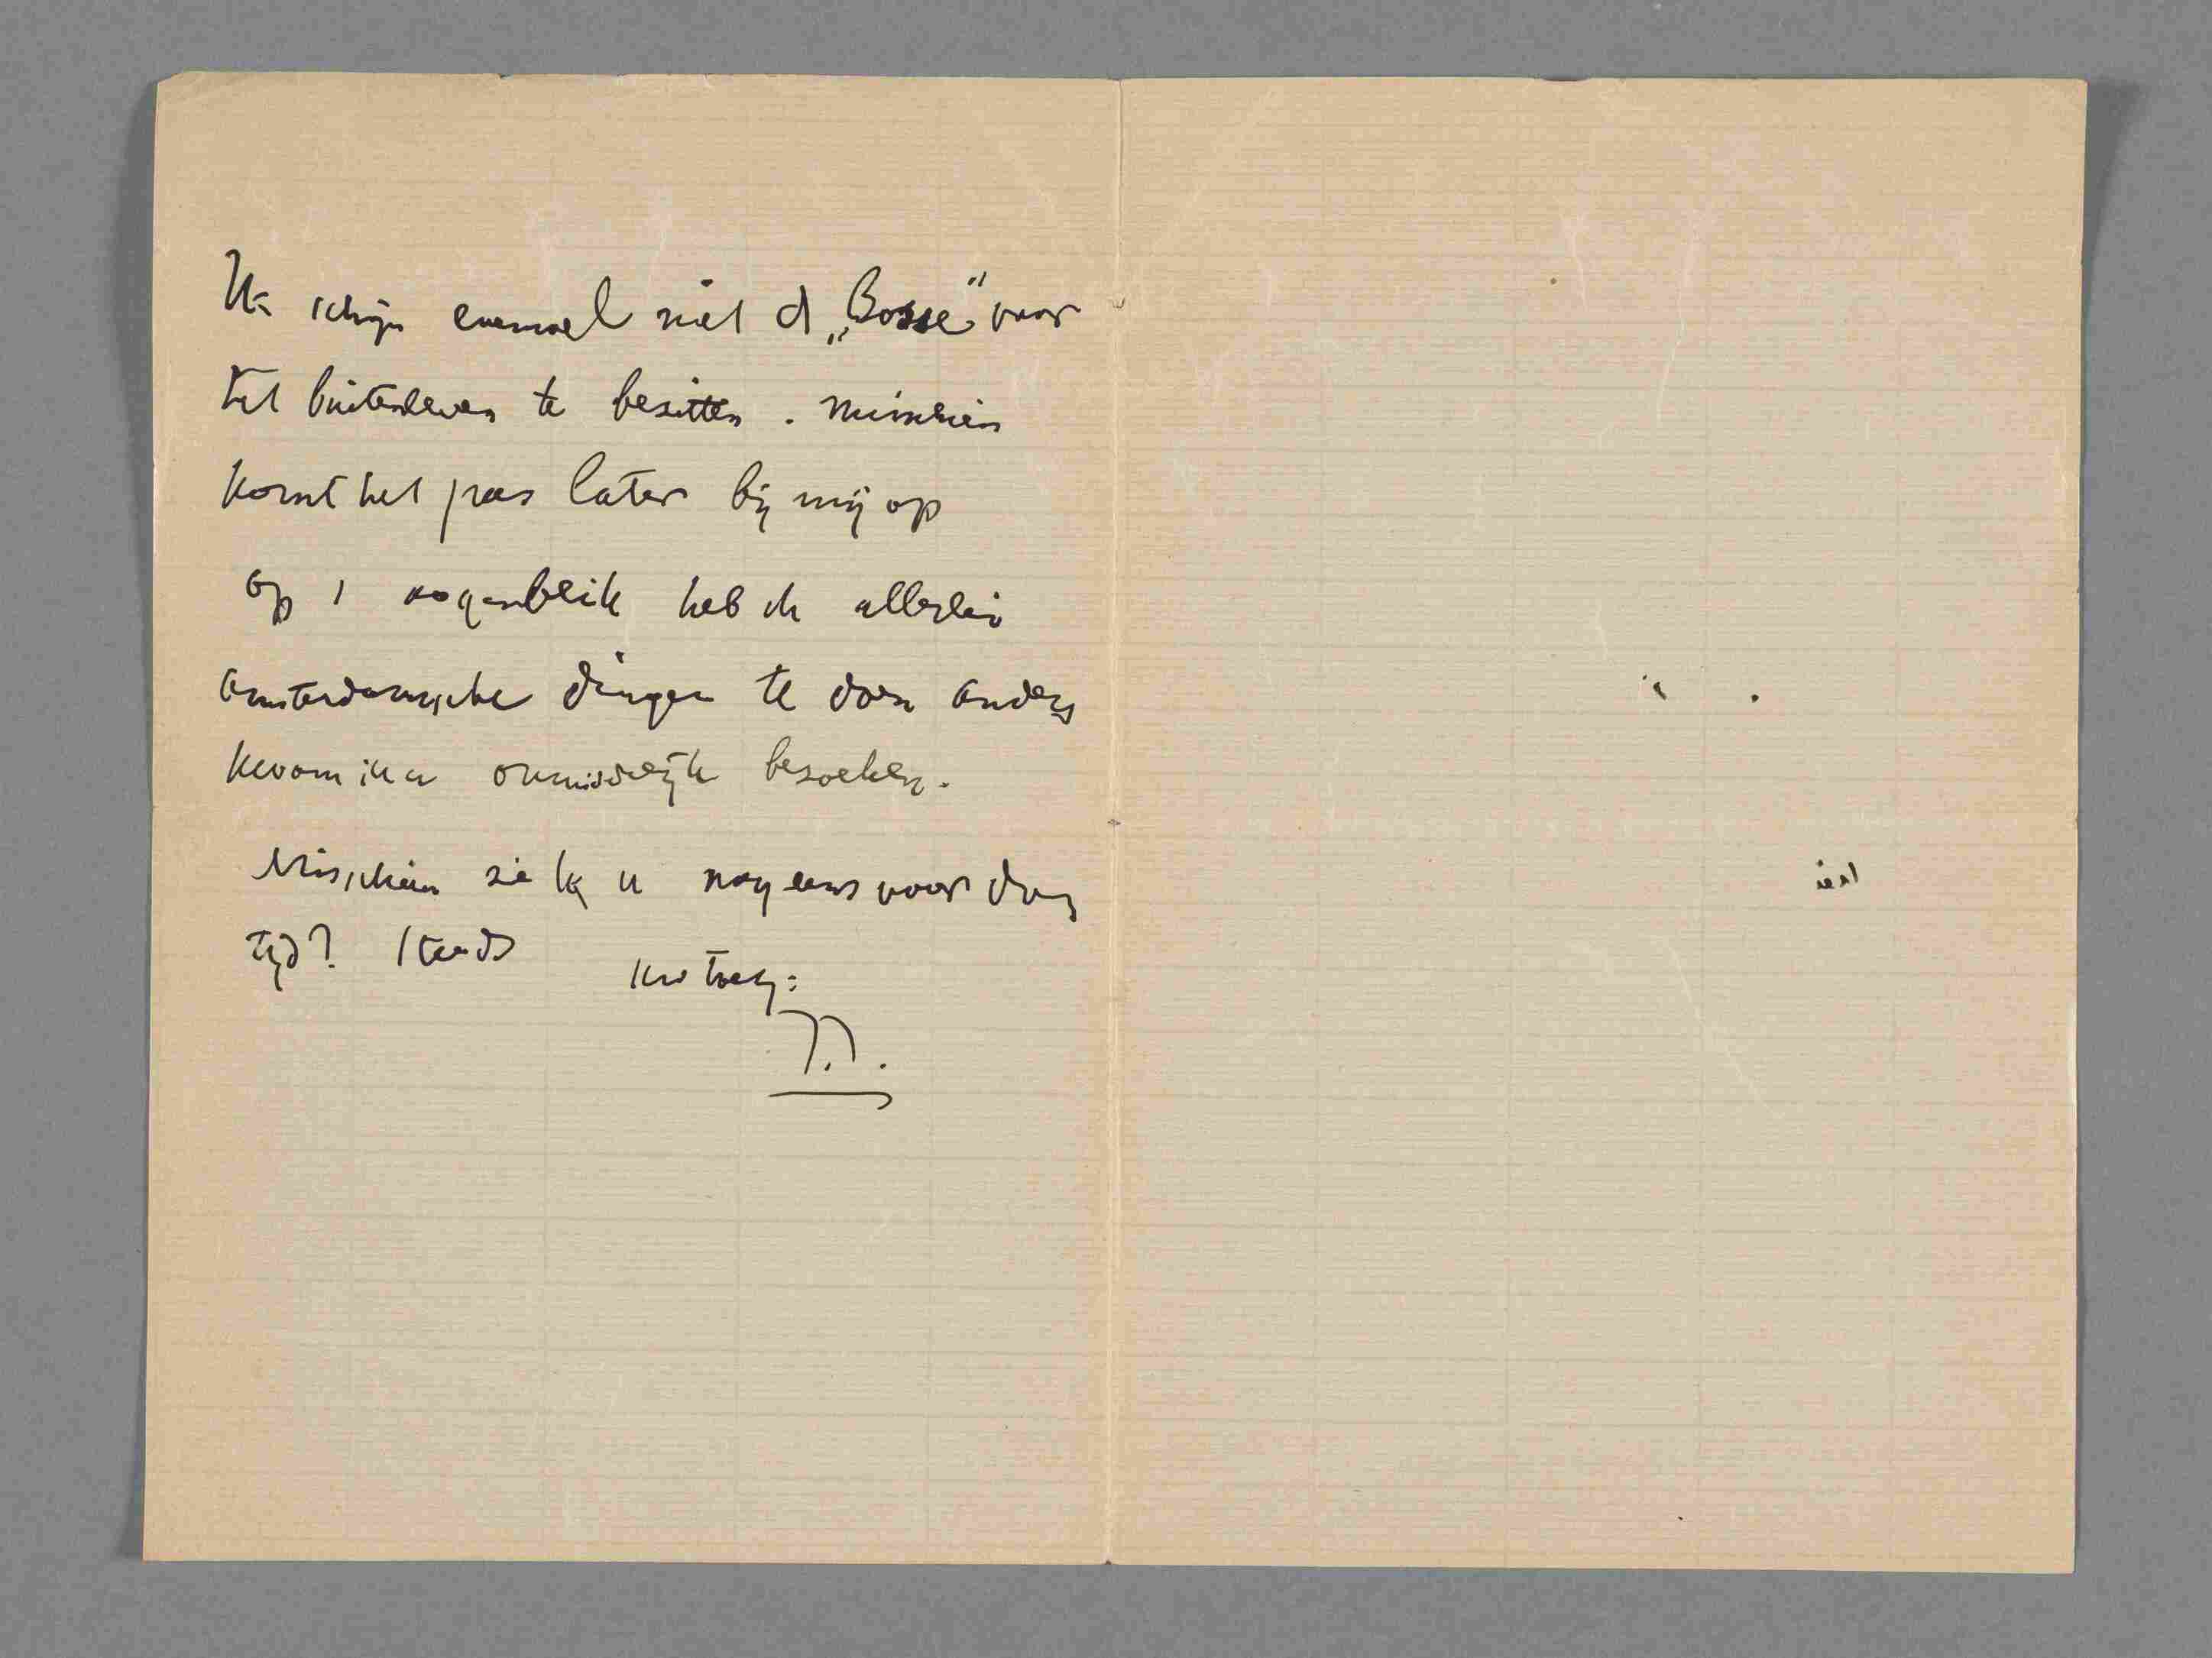 Ik schijn eenmaal niet d „Bosse” voor
het buitenleven te besitten. Misschien
komt het pas later bij mij op
op 1 oogenblik heb ik allerlei
Amsterdamsche dingen te doen anders
kwam ik u onmiddelijk besoeken.
Misschien sie ik u nog eens voor dien
tijd? Steeds